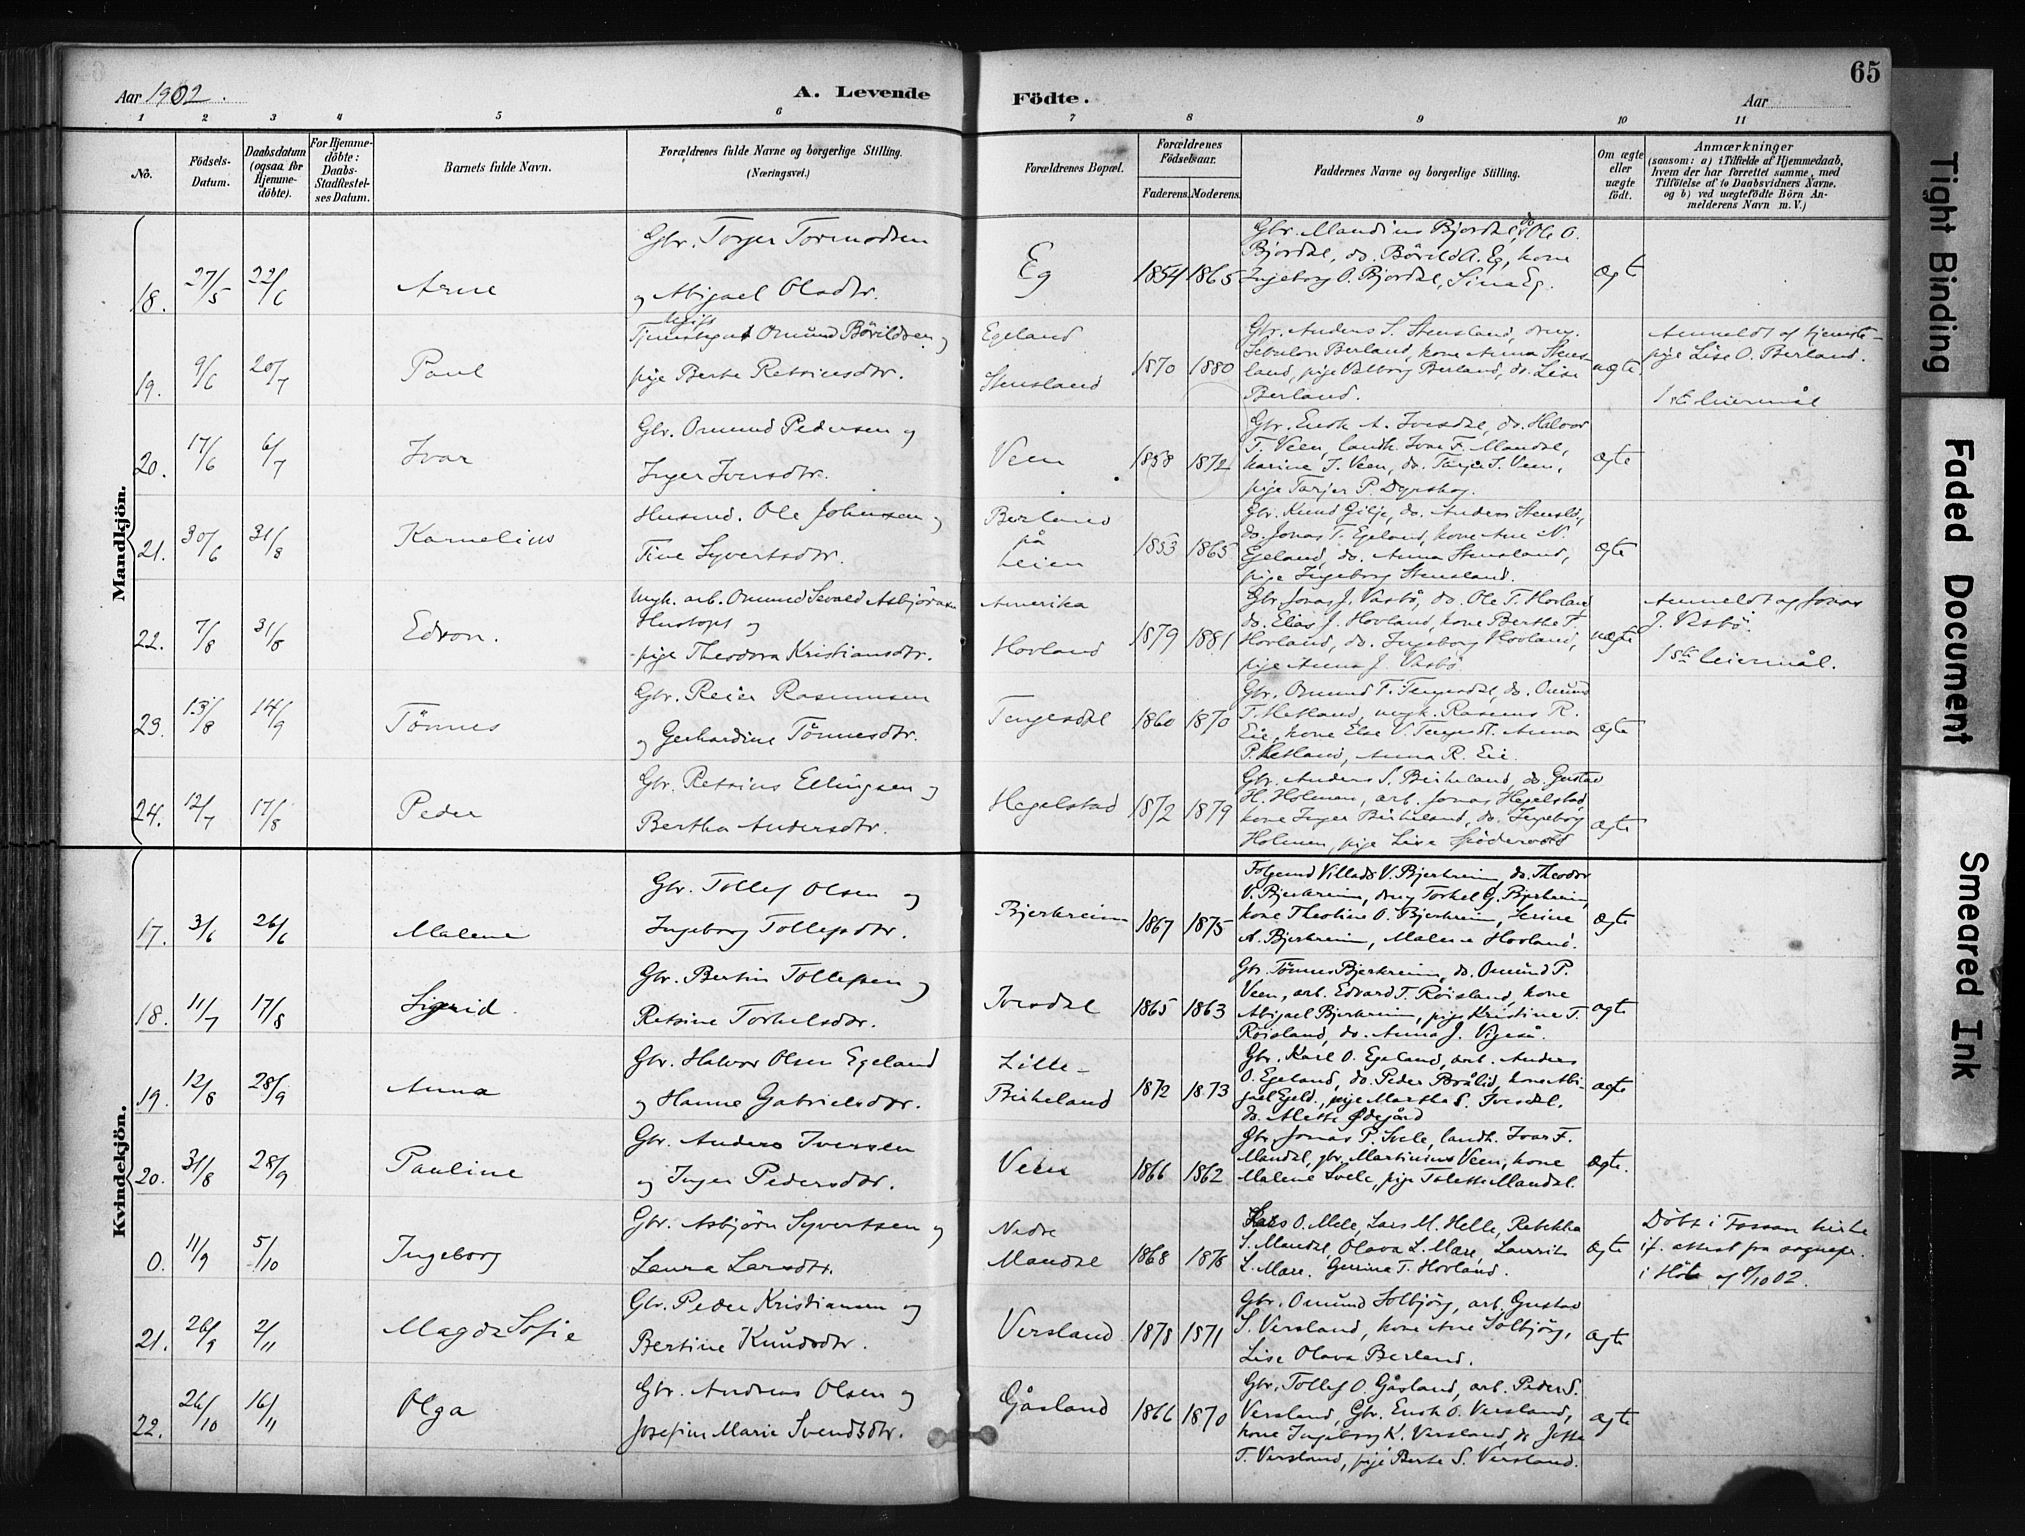 Aar 1902.
A. Levende
Födte.
Aar
65
1 2 3 4 5 6 7 8 9 10 11
No.
Födsels-Datum.
Daabsdatum (ogsaa for Hjemme-döbte).
For Hjemme-döbte: Daabs-Stadfestel-ses Datum.
Barnets fulde Navn.
Forældrenes fulde Navne og borgerlige Stilling. (Næringsvei.)
Forældrenes Bopæl.
Forældrenes Födselsaar.
Faderens. Moderens.
Faddernes Navne og borgerlige Stilling.
Om ægte eller uægte födt.
Anmærkninger
(saasom: a) i Tilfælde af Hjemmedaab,
hvem der har forrettet samme, med
Tilföielse af to Daabsvidners Navne,
og b) ved uægtefödte Börn An-
melderens Navn m. V.)
Mandkjön.
18. 27/5 22/6 Arne
Gbr. Torger Tormodsen
og Abigael Olsdtr.
Eg 1854 1865
Gbr. Mandius Bjordal, do. Ole O.
Bjordal, do. Börild A. Eg, kone
Ingeborg O. Bjordal, Sina Eg.
ægte
19. 9/6 20/7 Paul
Ugift
Omund Börildsen og
pige Berte Retsiusdtr.
Egeland
Stensland
1870 1880
Gbr. Anders S. Stensland, drng.
Sebulon Berland, kone Anna Stens-
land, pige Valborg Berland, do. Lise
Berland.
uægte
Anmeldt af tjeneste-
pige Lise O. Berland.
1ste leiermål
20. 17/6 6/7 Ivar
Gbr. Omund Pedersen og
Inger Iversdtr.
Veen 1858 1872
Gbr. Enok A. Ivesdal, do. Halvor
T. Veen, landh. Ivar F. Mandal,
Karine T. Veen, do. Veen,
pige Tarjer P. Dyrskog.
ægte
21. 30/6 31/8 Kornelius
Husmd. Ole Johnsen og
Tine Syvertsdtr.
Berland
på
Leien
1853 1865
Gbr. Knud Gilje, do. Anders Stensld,
do. Jonas T. Egeland, kone Ane N.
Egeland, do. Anna Stensland,
pige Ingeborg Stensland.
ægte
22. 7/8 31/8 Edvon.
Ungk. arb. Omund Sevald Asbjörnsen
Hustoft og
pige Theodora Kristiansdtr.
Amerika
Hovland
1879 1881
Gbr. Jonas J. Vasbö, do. Ole T. Hovland
do. Elias J. Hovland, kone Berthe T.
Hovland, do. Ingeborg Hovland,
pige Anna J. Vasbö.
uægte
Anmeldt af Jonas
J. Vasbö.
1ste leiermål.
23. 13/8 14/9 Tönnes
Gbr. Reier Rasmusen
og Gerhardine Tönnesdtr.
Tengesdal 1860 1870
Gbr. Omund T. Tengesdal, do. Omund
T. Hetland, ungk. Rasmus R.
Eie, kone Else V. Tengesdl. Anna
P. Hetland, Anna R. Eie.
ægte
24. 12/7 17/8 Peder
Gbr. Retsius Ellingsen og
Bertha Andersdtr.
Hegelstad 1872 1879
Gbr. Anders S. Birkeland, do. Gustav
H. Holmen, arb. Jonas Hegelstad,
kone Inger Birkeland, do. Ingeborg
Holmen, pige Lise Spödervold
ægte
Kvindekjön.
17. 3/6 26/6 Malene
Gbr. Tollef Olsen og
Ingeborg Tollefsdtr.
Bjerkreim 1867 1875
Folgemd Villads V. Bjerkreim, do. Theodor
V. Bjerkreim, drng Torkel G. Bjerkreim,
kone Theoline O. Bjerkreim, Serine
A. Bjerkreim, Malene Hovland.
ægte
18. 11/7 17/8 Sigrid.
Gbr. Bertin Tollefsen og
Retsine Torkelsdtr.
Ivesdal 1865 1863
Gbr. Tönnes Bjerkreim, do. Omund P.
Veen, arb. Edvard T. Röisland, kone
Abigael Bjerkreim, pige Kristine T.
Röisland, do. Anna J. Vigeså.
ægte
19. 12/8 28/9 Anna
Gbr. Halvor Olsen Egeland
og Hanne Gabrielsdtr.
Lille-
Birkeland
1872 1873
Gbr. Karl O. Egeland, arb. Anders
O. Egeland, do. Peder Brålid, kone Abi-
gael Egeld., pige Martha S. Ivesdal.
do. Alette Ødegård
ægte
20. 31/8 28/9 Pauline
Gbr. Anders Iversen
og Inger Pedersdtr.
Veen 1866 1862
Gbr. Jonas P. Svele, landh. Ivar F.
Mandal, gbr. Martinius Veen, kone
Malene Svele, pige Tolette Mandal.
ægte.
0. 11/9 5/10 Ingeborg
Gbr. Asbjörn Syvertsen og
Laura Larsdtr.
Nedre
Mandal
1868 1876
Lars O. Mele, Lars M. Helle, Rebekka
S. Mandal, Olava L. Mære, Laurits
L. Mære. Gurina T. Hovland.
ægte
Döbt i Fossan kirke
if. attest fra sognepr.
i Höle af 8/10 02.
21. 26/9 2/11 Magda Sofie
Gbr. Peder Kristiansen og
Bertine Knudsdtr.
Versland 1878 1871
Gbr. Omund Solbjörg, arb. Gustav
S. Versland, kone Ane Solbjörg,
Lise Olava Berland.
ægte
22. 26/10 16/11 Olga
Gbr. Andreas Olsen og
Josefine Marie Svendsdtr.
Gåsland 1866 1870
Gbr. Tollef O. Gåsland, arb. Peder S.
Versland, Gbr. Enok O. Versland,
kone Ingeborg K. Versland, do Jette
T. Versland, pige Berte S. Versland.
ægte
Tight Binding
Faded Document
Smeared Ink